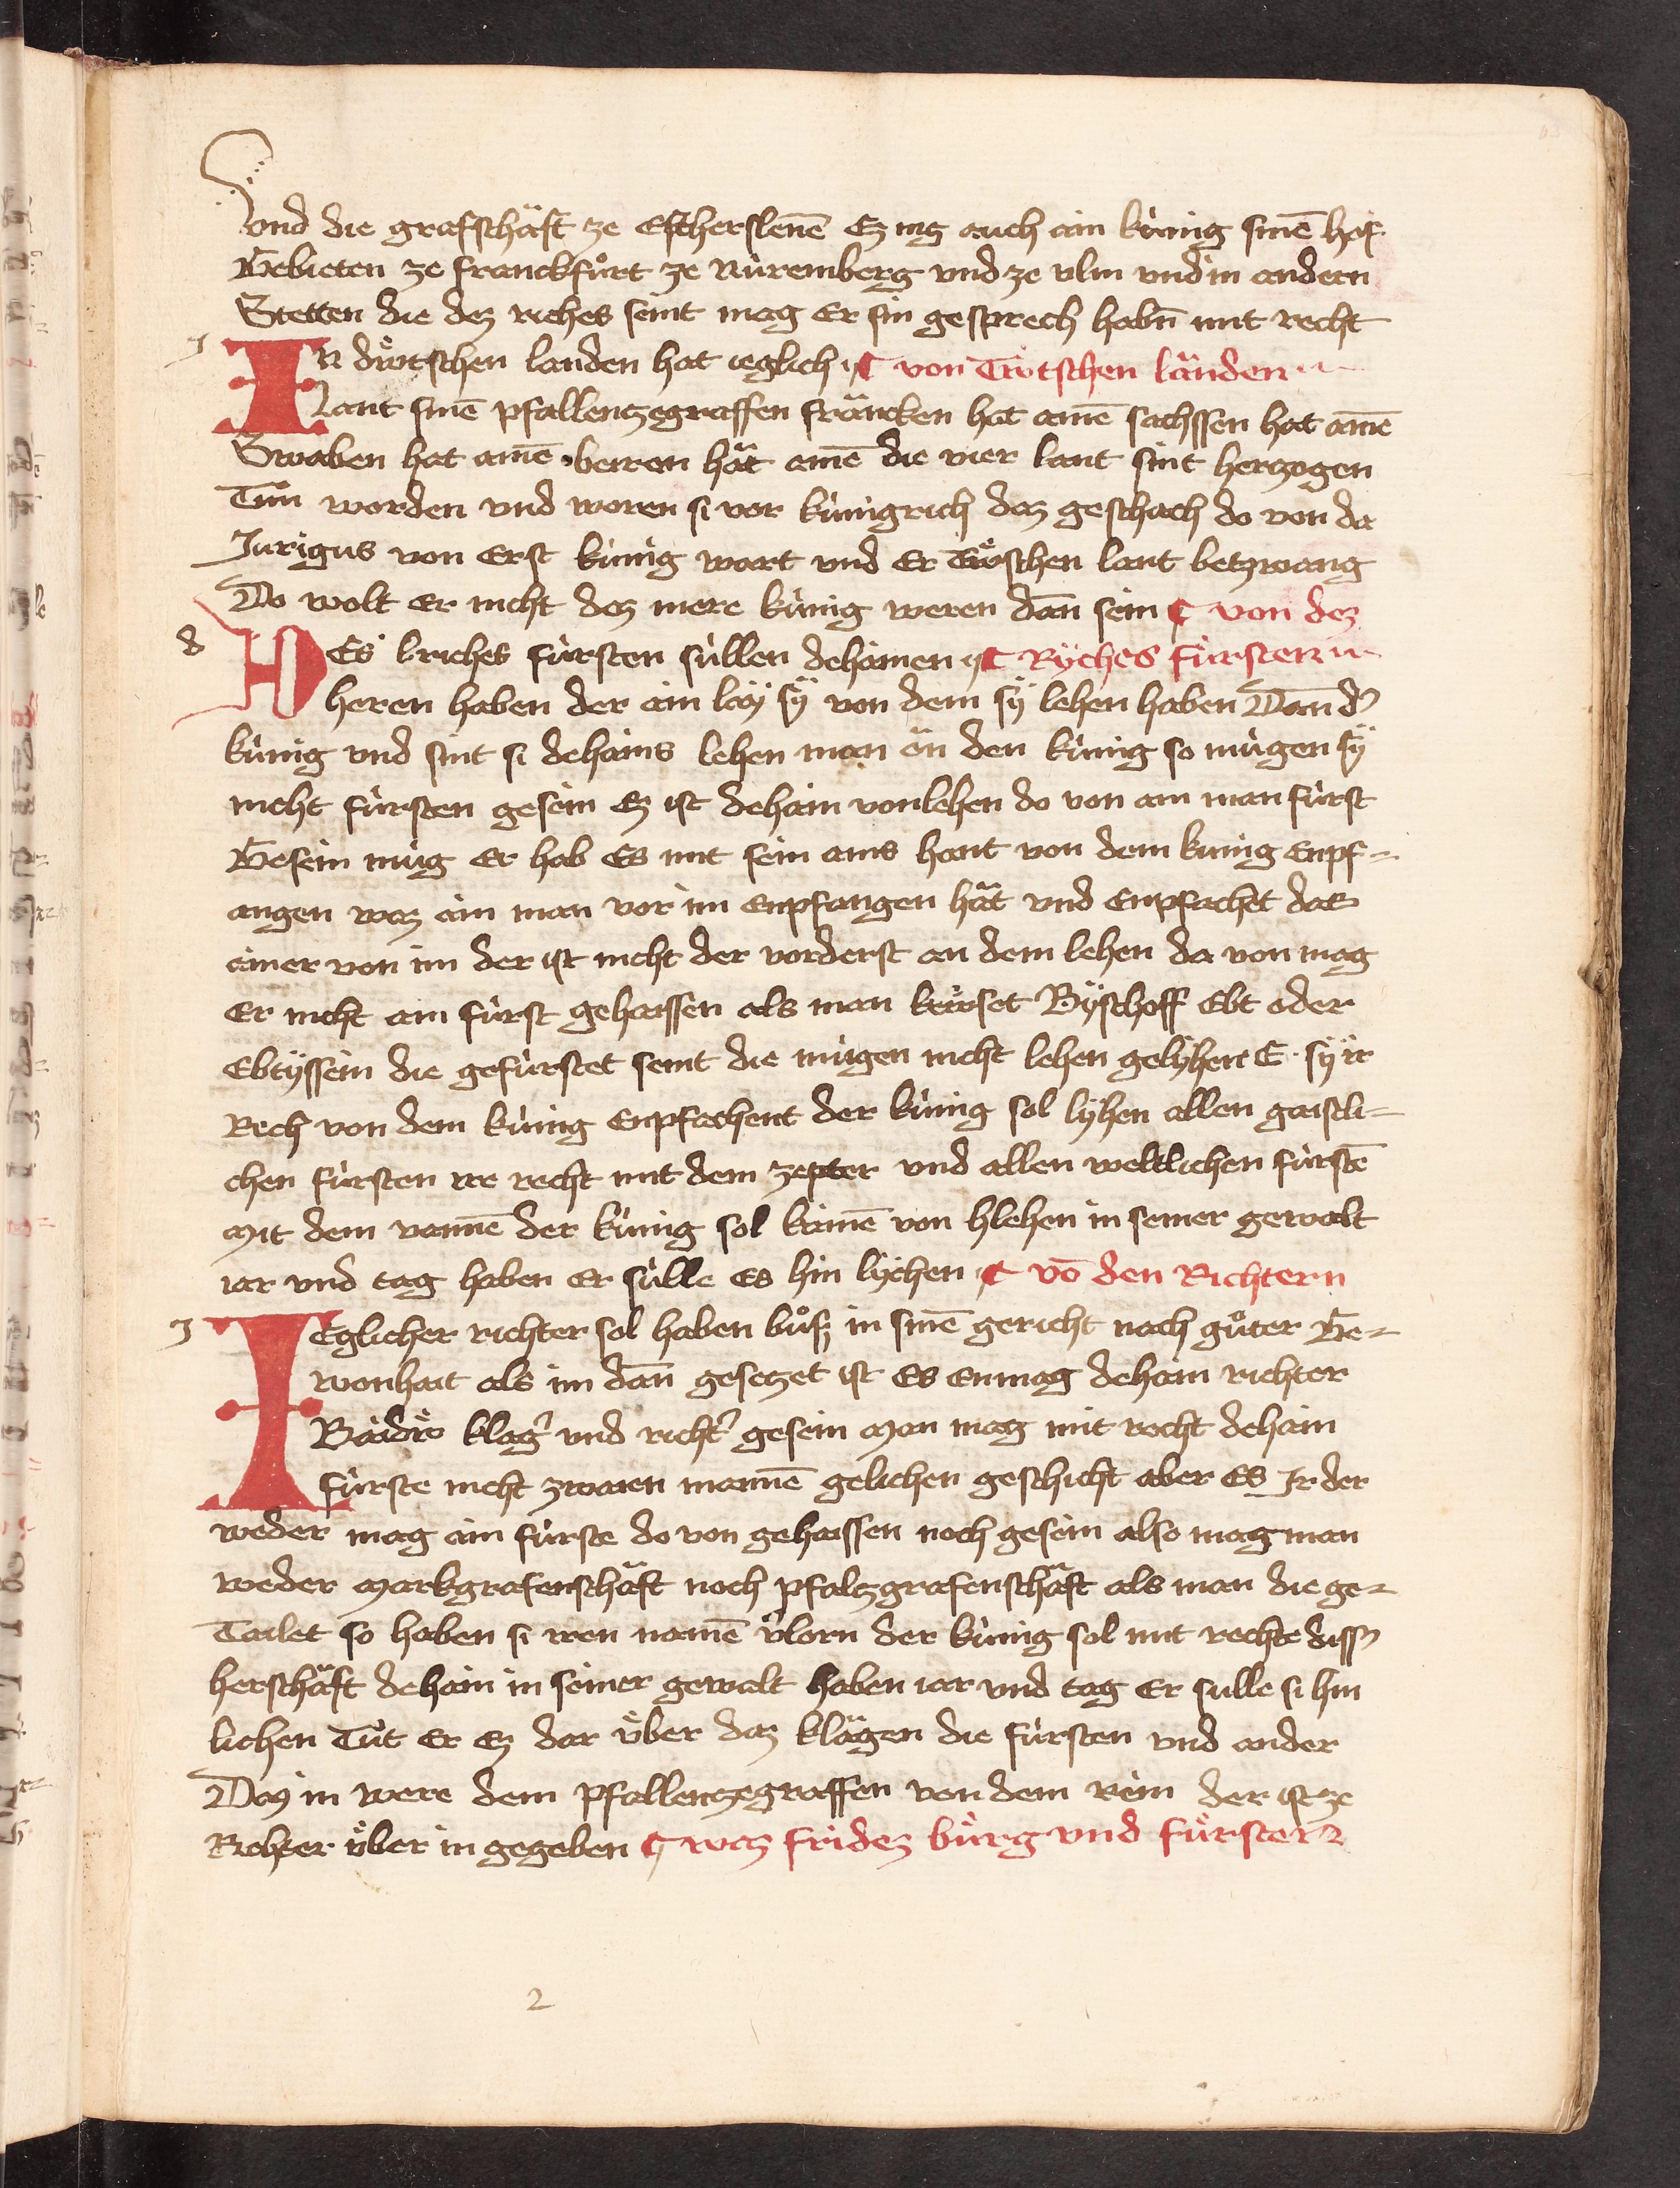 vnd die grafschäft ze Estherslenē Ez mg auch ain kúnig sinē hof
Gebieten ze franckfůrt ze Nùremberg vnd ze vlm vnd in andern
Stetten die dez riches seint mag er sin gesprech habn̄ mit recht
J
IN dùtschen landen hat ieglich ¶ von Tùtschen länden
Lant sinē pfallentzegraffen fräncken hat ainē sachssen hat ainē
Swaben hat ainē beiren hät ainē die vier lant sint hertzogen
Tům worden vnd woren si vor kùnigrich daz geschach do von da
Jurigus von erst kúnig wart vnd er Tùschen lant betzwang
Do wolt er nicht dez mere kùnig weren dān sein ¶ von dez
d
DEs kriches fùrsten sùllen dehainen ¶ Rÿches fùrsten
heren haben der ain laÿ sÿ von dem sÿ lehen haben Dan d'
kùnig vnd sint si dehains lehen man än den kùnig so mùgen sÿ
nicht fùrsten gesein Ez ist dehain vonlehen do von ain man fùrst
Gesein mùg er hab es mit sein ains hant von dem kunig enpf-
angen waz ain man vor im enpfangen hät vnd enpfachet daz
ainer von im der ist nicht der vorderst an dem lehen da von mag
er nicht ain fùrst gehaissen als man kùrset Bÿschoff Ebt oder
Ebtÿssein die gefùrstet seint die mùgen nicht lehen gelÿhen E sÿ ir
Rech von dem kùnig enpfachent der kùnig sol lÿhen allen gaistli-
chen fùrsten ire recht mit dem zepter vnd allen weltlichen fùrstē
Mit dem vannē der kùnig sol kainē von hlehen in seiner gewalt
iar vnd tag haben er sùlle es hin lÿchen ¶ vō den Richtern
J
IEglicher richter sol haben bůß in sinē gericht nach gůter Ge-
wonhait als im dān gesetzet ist Es enmag dehain richter
Baidù klag' vnd richt' gesein Man mag mit recht dehain
fùrste nicht zwaien mannē gelichen geschicht aber es Jr der
weder mag ain fùrste do von gehaissen noch gesein also mag man
weder Markgrafenschäft noch pfaltzgrafenschäft als man die ge-
Tailet so haben si iren namē v'lorn der kùnig sol mit rechte diss'
herschäft dehain in seiner gewalt haben iar vnd tag er sulle si hin
lichen Tůt er ez dar ùber daz klägen die fùrsten vnd ander
Daz in were dem pfallentzegraffen von dem rein der ist ze
Richter ùber in gegeben ¶ waz fridez bùrg vnd fùrsten
2